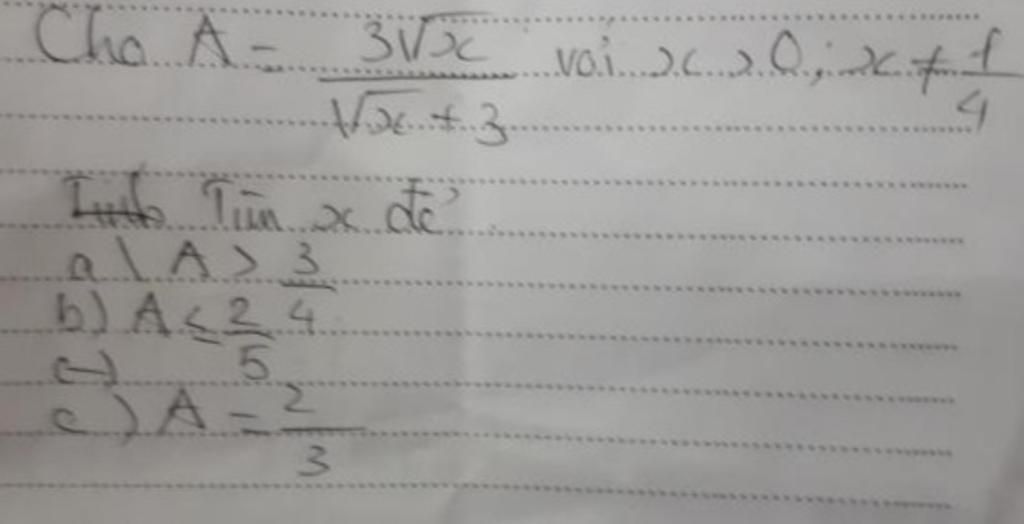 Cho A = \frac{3\sqrt{x}}{\sqrt{x}+3} với x > 0; x ≠ \frac{1}{4}
Tìm x để
a) A > \frac{3}{4}
b) A ≤ \frac{2}{5}
c)
c) A = \frac{2}{3}